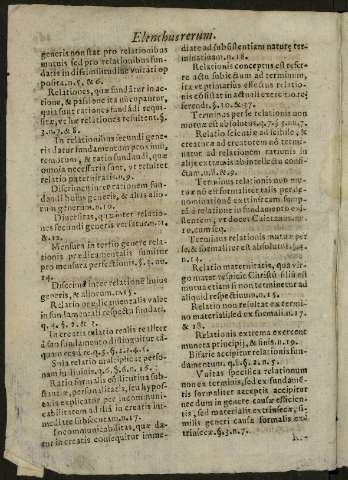 Elenchus rerum.
generis non stat pro relationibus
mutuis sed pro relationibus fun-
datis in dissimilitudine vnitati op
posita. n. 5. & 6.
Relationes, quæ fundãtur in ac-
tione, & passione ita nuncupantur,
quia sunt rationes fundãdi requi-
sitæ, vt hæ relationes resultent. §.
3. n. 7. & 8.
In relationibus secundi gene-
ris datur fundamentum proximũ,
remotum, & ratio fundandi, quæ
omnia necessaria sunt, vt resultet
relatio paternitatis. n. 9.
Discrimen inter rationem fun-
dandi huius generis, & altas alio-
rum generum. n. 10.
Diuersitas, quæ inter relatio-
nes secundi generis versatur. n. 11.
& 12.
Mensura in tertio genere rela-
tionis prædicamentalis sumitur
pro mensura perfectionis. §. 3. nu.
14.
Discrimẽ inter relatione huius
generis, & aliorum. n. 15.
Relatio prædicamentalis valet
in fundamentali respectu fundari.
q. 4. §. 2. & 3.
In creatis relatio realis realiter
à suo fundamento distinguitur tã-
quam ens à re. q. 5. §. 1. 2. 4. 6.
Sola relatio multiplicat perso-
nam in diuinis. q. 6. §. 6. n. 16.
Ratio formalis cõstitutiua sub-
stantiæ, personalitatis, seu hypos-
tasis explicatur per incommuni-
cabilitatem ad liã in creatis im-
mediate subsecutam. n. 17.
Incommunicabilitas, quæ da-
tur in creatis consequitur imme-
diate ad subsistentiam naturæ ter-
minatiuam. n. 18.
Relationis conceptus est refer-
re actu subiectum ad terminum,
ita vt primarius effectus relatio-
nis cõsistat in actuali exercitio re-
ferendi. §. 10. & 37.
Terminus per se relationis non
mutuæ est absolutus. q. 7. §. 3. n. 7.
Relatio scientiæ ad scibile, &
creaturæ ad creatorem nõ termi-
natur ad relationem rationis in
alijs extremis ab intellectu confi-
ctam. n. 8. & 9.
Terminus relationis non mu-
tuæ nõ est formaliter talis per de-
nominationẽ extrinsecam sump-
tam à relatione in fundamento exi-
stenti, vt docet Caietanus. nu.
10. cum seq.
Terminus relationis mutuæ per
se, & formaliter est absolutus. §. 4.
n. 14.
Relatio maternitatis, qua vir-
go mater respicit Christũ filiũ est
mutua etiam si non terminetur ad
aliquid respectiuum. n. 15.
Relatio non resultat ex termi-
no materiali, sed ex formali. n. 17.
& 18.
Relationis extrema exercent
munera principij, & finis. n. 19.
Bifarie accipitur relationis fun-
damentum. q. 8. §. 2. n. 5.
Vnitas specifica relationum
non est ex terminis, sed ex fundamẽ-
tis, formaliter acceptis accipitur
nec dum in genere causæ efficien-
tis, sed materialis extrinsecæ, si-
milis generi causæ formalis ex-
trinsecæ. §. 3. n. 7.